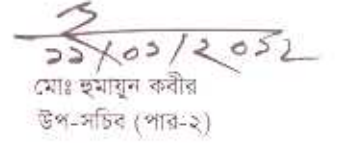 ২২/০১/২০১২
মোঃ হুমায়ুন কবীর
উপ-সচিব (পার-২)